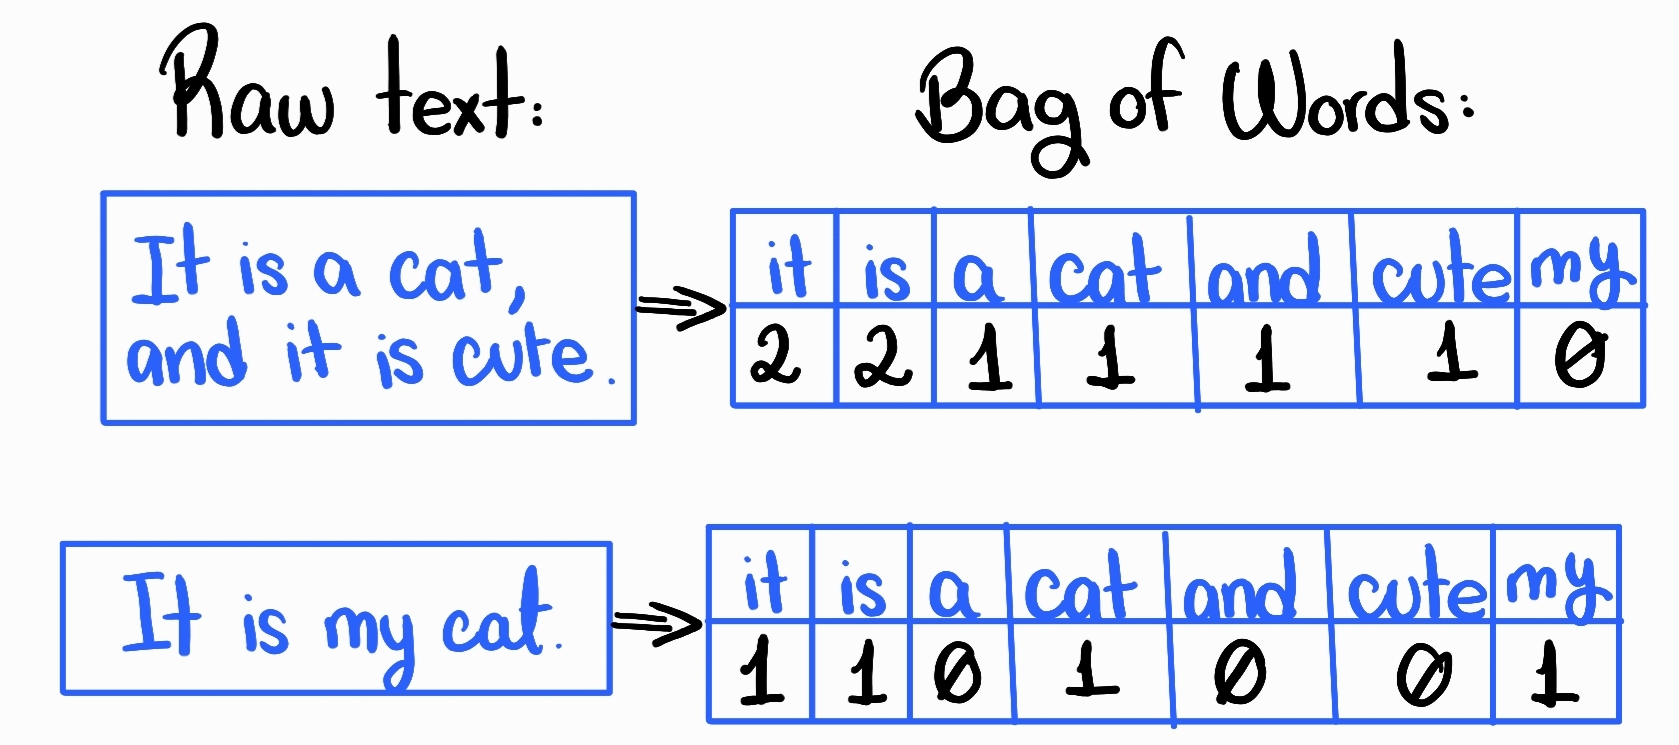 Raw text:
Bag of Words:
It is a cat,
and it is cute.
it is a cat and cute my
2 2 1 1 1 1 0
It is my cat.
it is a cat and cute my
1 1 0 1 0 0 1